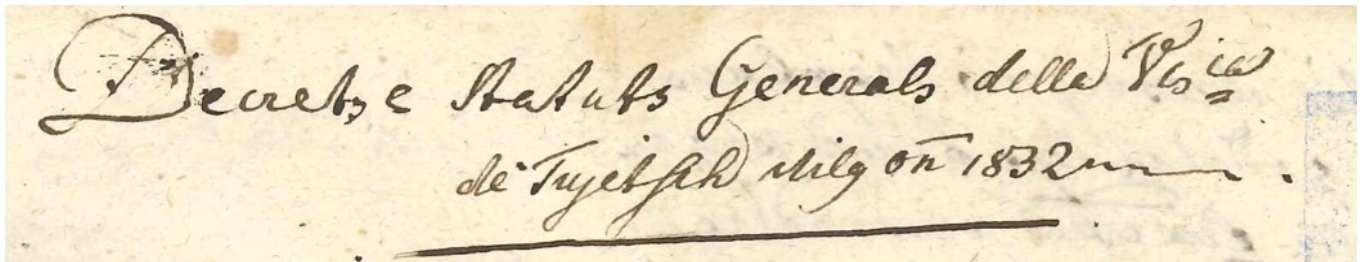 Decrets e Statuts Generals della Vis.ia
de Tujetsch Milg onn 1832